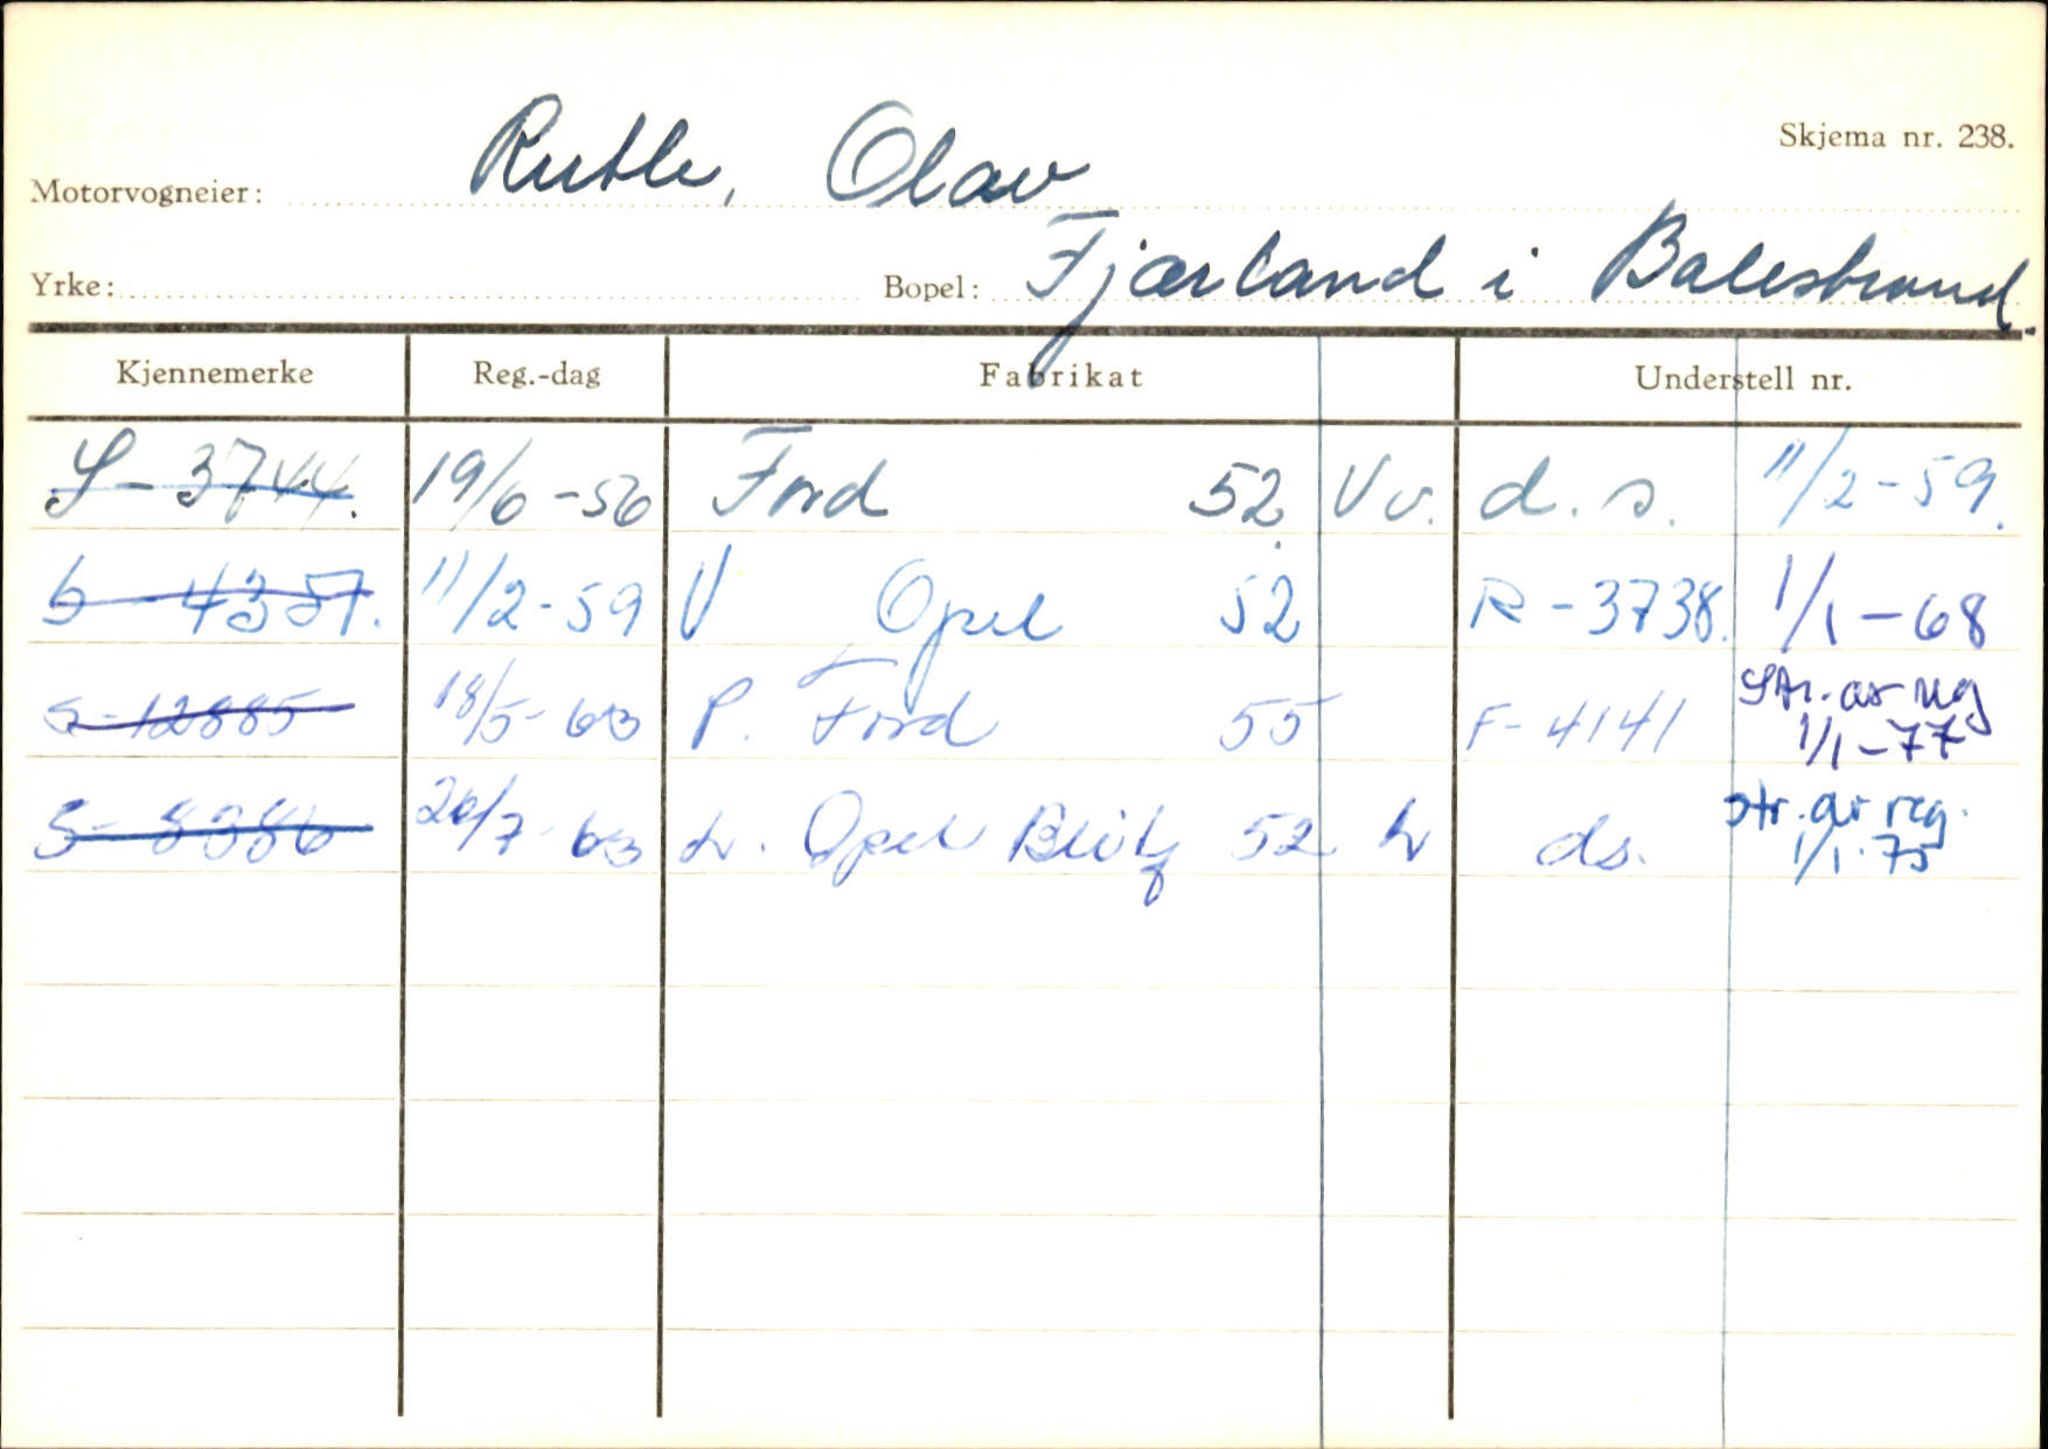 Skjema nr. 238.
Motorvogneier: Rutle, Olav
Yrke: Bopel: Fjærland i Balestrand.
Kjennemerke Reg.-dag Fabrikat Understell nr.
S-3744. 19/6-56 Ford 52 Vv. d.s. 11/2-59.
S-4357. 11/2-59 V Opel 52 R-3738. 1/1-68
S-12885 18/5-63 P. Ford 55 F-4141 Str. av reg
1/1-77
S-8386 20/7-63 L. Opel Blitz 52 L ds. str. av reg.
1/1-75